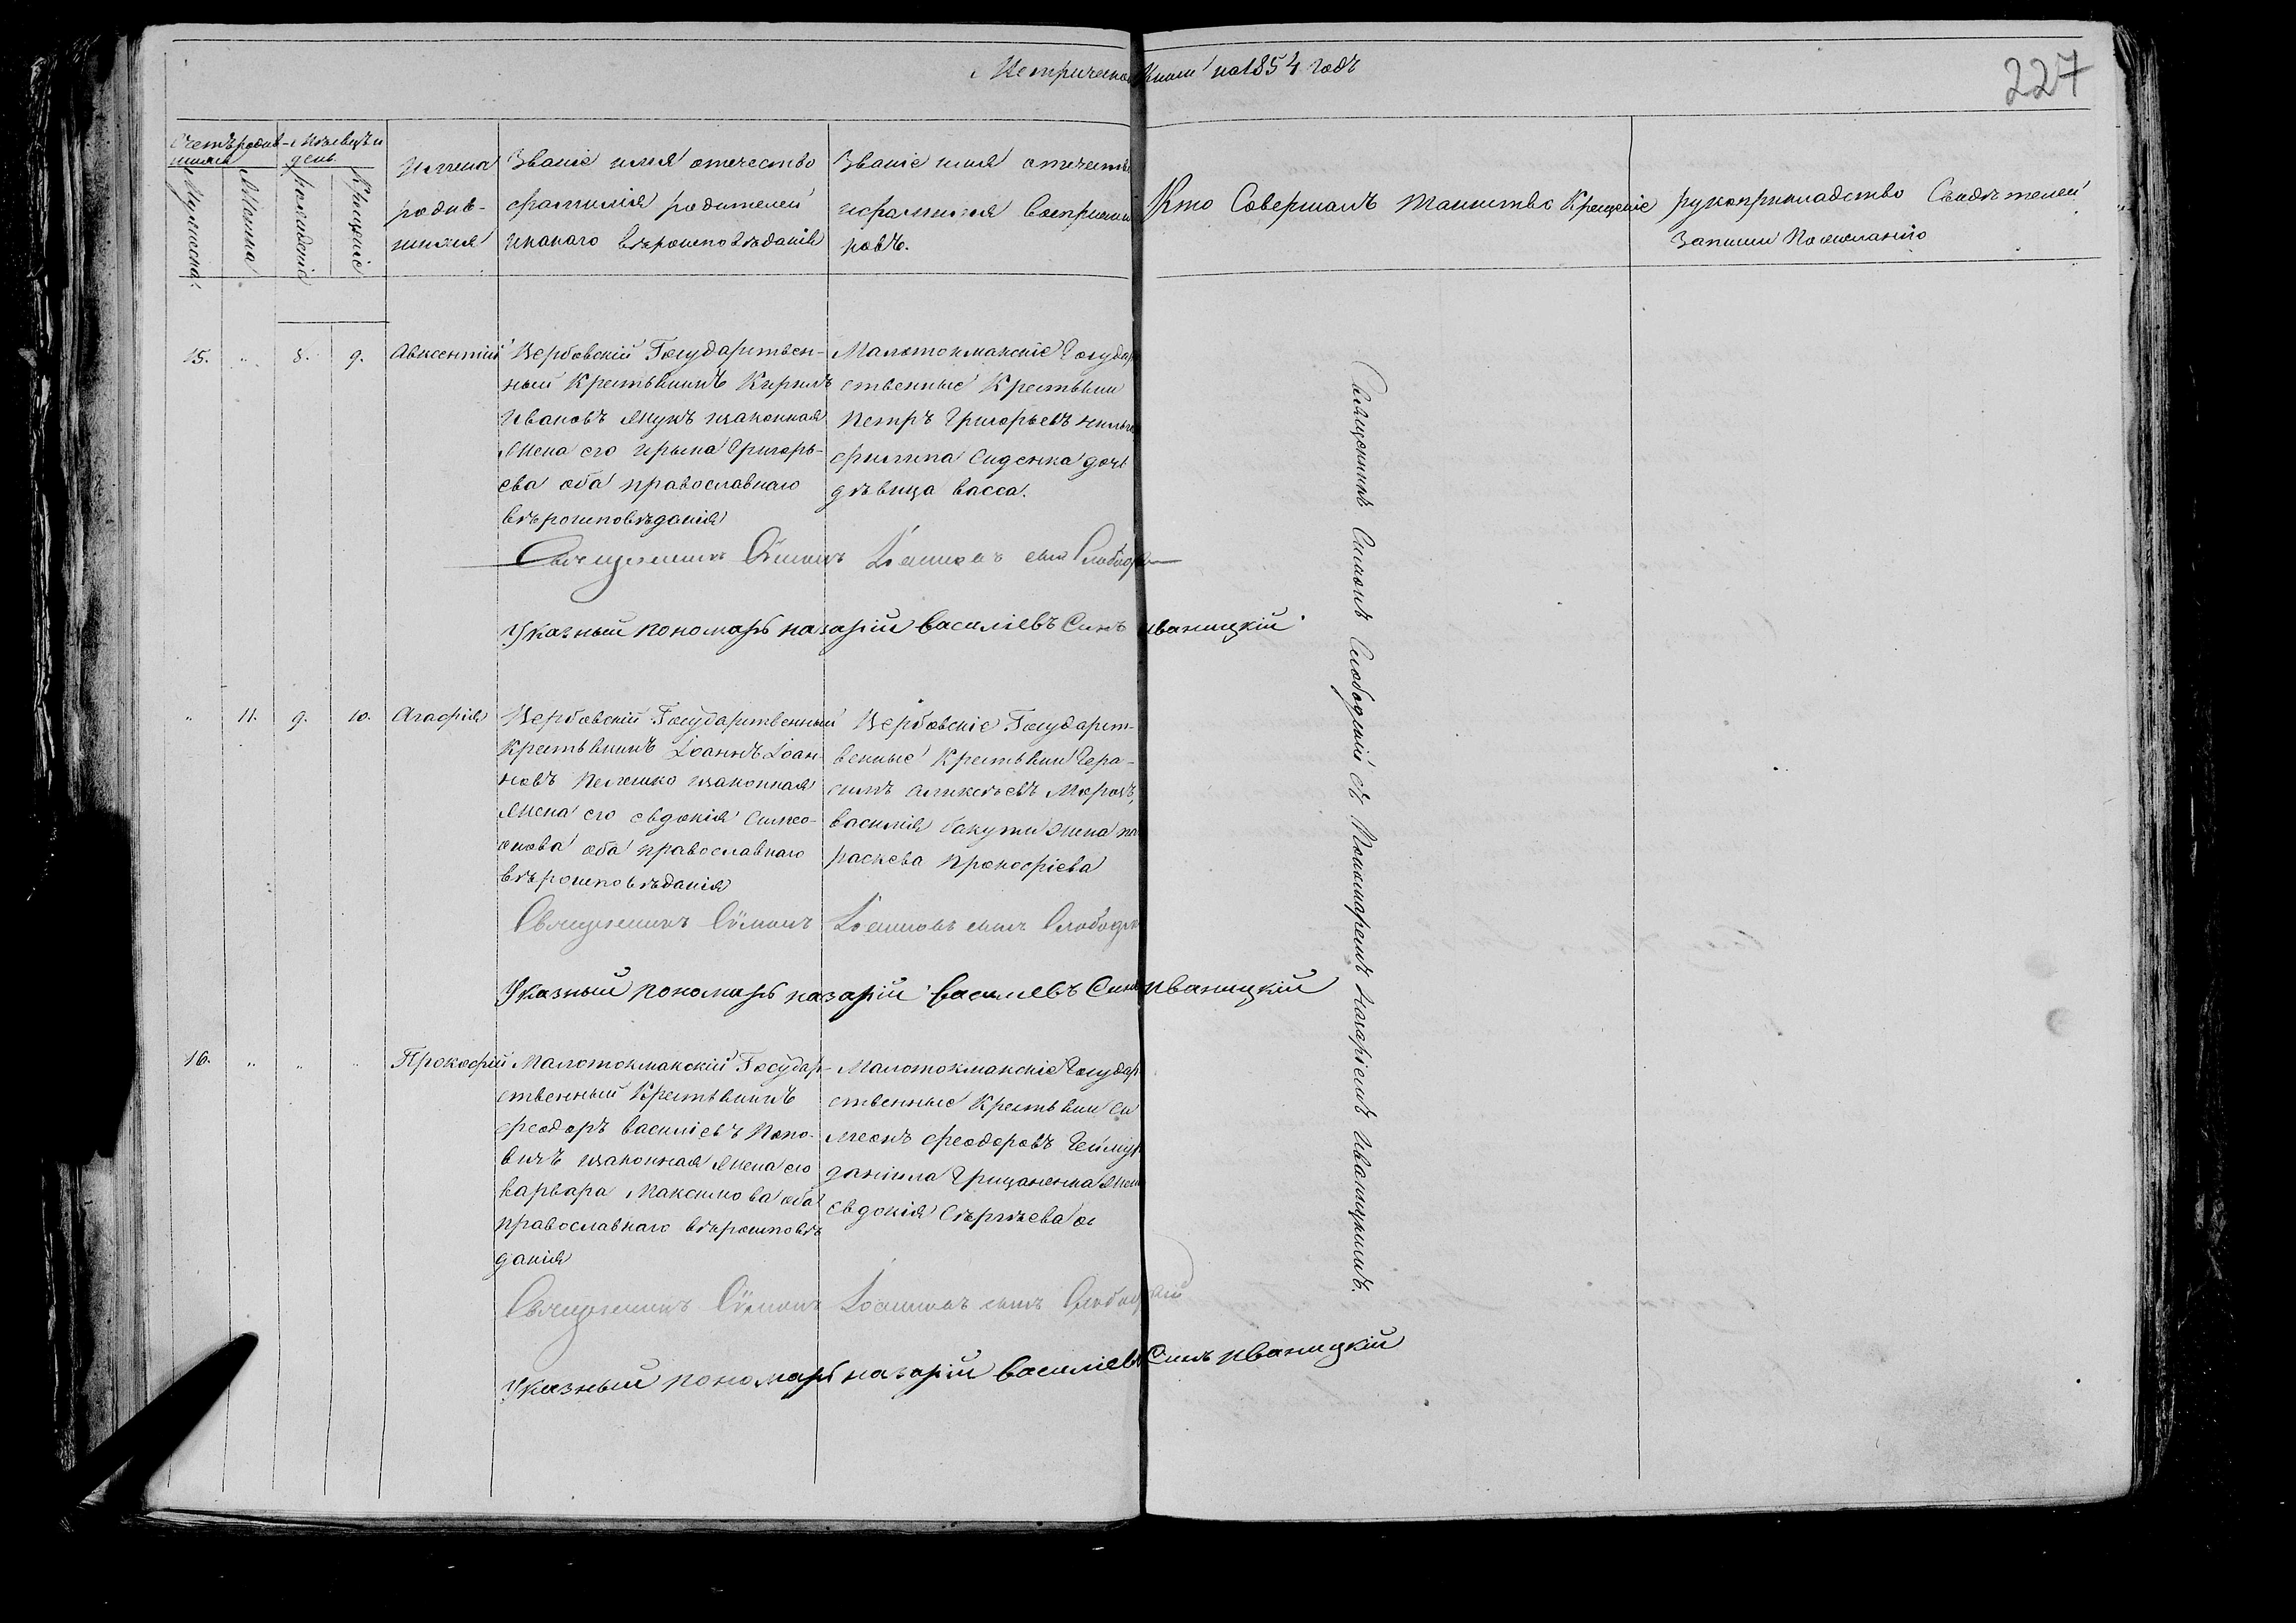 Метрической Книги на 1854 годъ
227
Счетъ родив-
шихся
Мѣсяцъ и
день
Мужеска.
Женска
рожденіе
Крещеніе
Имена
родив-
шихся
Званіе имя отечество
фамилія родителей
и какаго вѣроисповѣданія
Званіе имя отчество
и фамилія воспріемни
ковъ.
Кто Совершалъ таинство Крещенія
рукоприкладство Свидѣтелей
Записи По желанію
15. 8. 9. Авксентій
Вербовскій Государствен-
ный Крестьянинъ Кирилъ
Ивановъ Жукъ изаконная
Жена его Ирына Григорь-
ева оба православнаго
вѣроисповѣданія
Малотокмакскіе Государ
ственные Крестьяни
Петръ Григорьевъ
филипа Сиденка дочь
дѣвица васса.
Священникъ Симонъ Іоанновъ сынъ Слободск
Указный пономарь назарій василіевъ Синъ иваницкій
11. 9. 10. Агафія
Вербовскій Государственный
Крестьянинъ Іоаннъ Іоан-
новъ Пелешко изаконная
Жена его евдокія Симео-
онова оба православнаго
вѣроисповѣданія
Вербовскіе Государст-
венные Крестьяни Гера-
симъ Аликсѣевъ Морозъ,
василія бакути жена па
раскева прокофіева
Священникъ Симонъ Іоанновъ сынъ Слободск
Указный пономарь назарій василіевъ Синъ иваницкій
16. Прокофій
Малотокмакскій Государ-
ственный Крестьянинъ
феодоръ василіевъ Попо-
вичъ изаконная Жена его
варвара Максимова оба
православнаго вѣроисповѣ
данія
Малотокмакскіе Государ
ственные Крестьяни Си
меонъ феодоровъ
даніила Грицаненка Жена
евдокія Сергѣева
Священникъ Симонъ Іоанновъ сынъ Слободскій
Указный пономарь назарій василіевъ Синъ иваницкій
Священникъ Симонъ Слободскій съ Пономаремъ Назаріемъ Иваницкимъ.